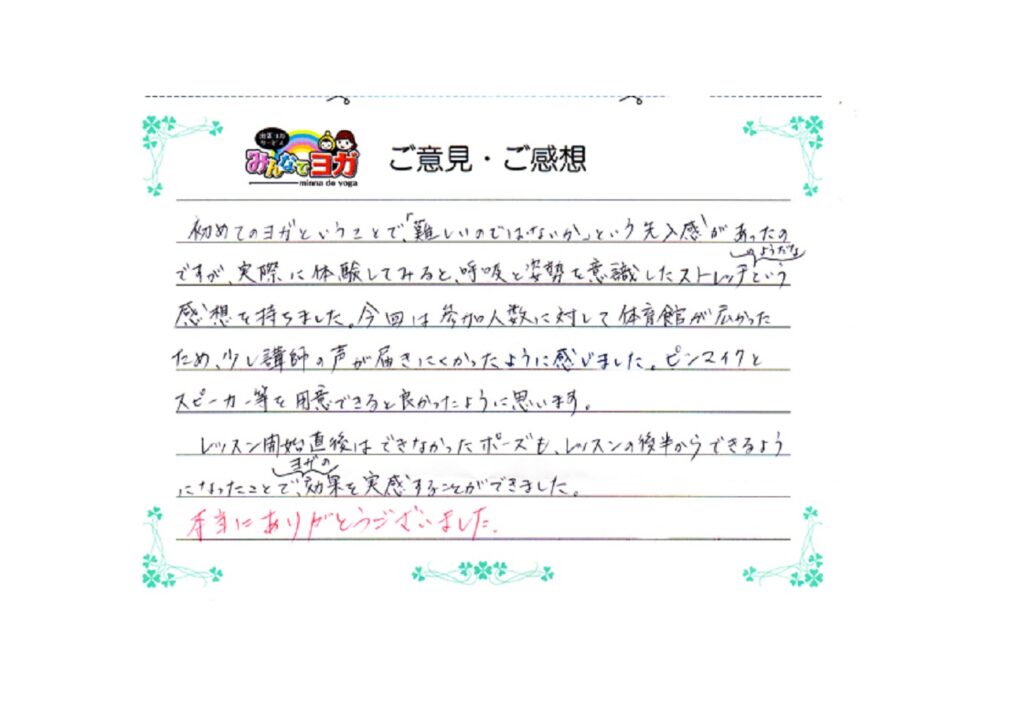 出張ヨガ
サービス
みんなでヨガ
minna de yoga
ご意見・ご感想
初めてのヨガということで、「難しいのではないか」という先入感があったの
ですが、実際に体験してみると、呼吸と姿勢を意識したストレッチのようだという
感想を持ちました。今回は参加人数に対して体育館が広かった
ため、少し講師の声が届きにくかったように感じました。ピンマイクと
スピーカー等を用意できると良かったように思います。
レッスン開始直後はできなかったポーズも、レッスンの後半からできるよう
になったことで、ヨガの効果を実感することができました。
本当にありがとうございました。